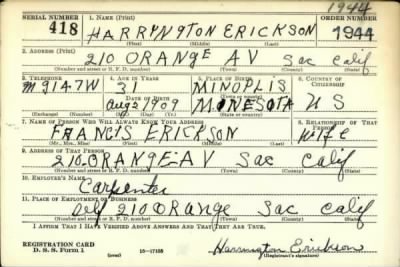 1944
SERIAL NUMBER 1. NAME (Print) ORDER NUMBER
418 HARRYNGTON ERICKSON 1944
(First) (Middle) (Last)
2. ADDRESS (Print)
210 ORANGE AV Sac Calif
(Number and street or R. F. D. number) (Town) (County) (State)
3. TELEPHONE 4. AGE IN YEARS 5. PLACE OF BIRTH 6. COUNTRY OF CITIZENSHIP
M9147W 3 MINOPLIS
DATE OF BIRTH (Town or county)
Aug 2 1909 MINESOTA U S
(Exchange) (Number) (Mo.) (Day) (Yr.) (State or country)
7. NAME OF PERSON WHO WILL ALWAYS KNOW YOUR ADDRESS 8. RELATIONSHIP OF THAT PERSON
FRANCIS ERICKSON WIFE
(Mr., Mrs., Miss) (First) (Middle) (Last)
9. ADDRESS OF THAT PERSON
210 ORANGE AV Sac Calif
(Number and street or R. F. D. number) (Town) (County) (State)
10. EMPLOYER'S NAME
Carpenter
11. PLACE OF EMPLOYMENT OR BUSINESS
Self 210 ORange Sac Calif
(Number and street or R. F. D. number) (Town) (County) (State)
I AFFIRM THAT I HAVE VERIFIED ABOVE ANSWERS AND THAT THEY ARE TRUE.
REGISTRATION CARD
D. S. S. Form 1 (over) Harrington Erickson
(Registrant's signature)